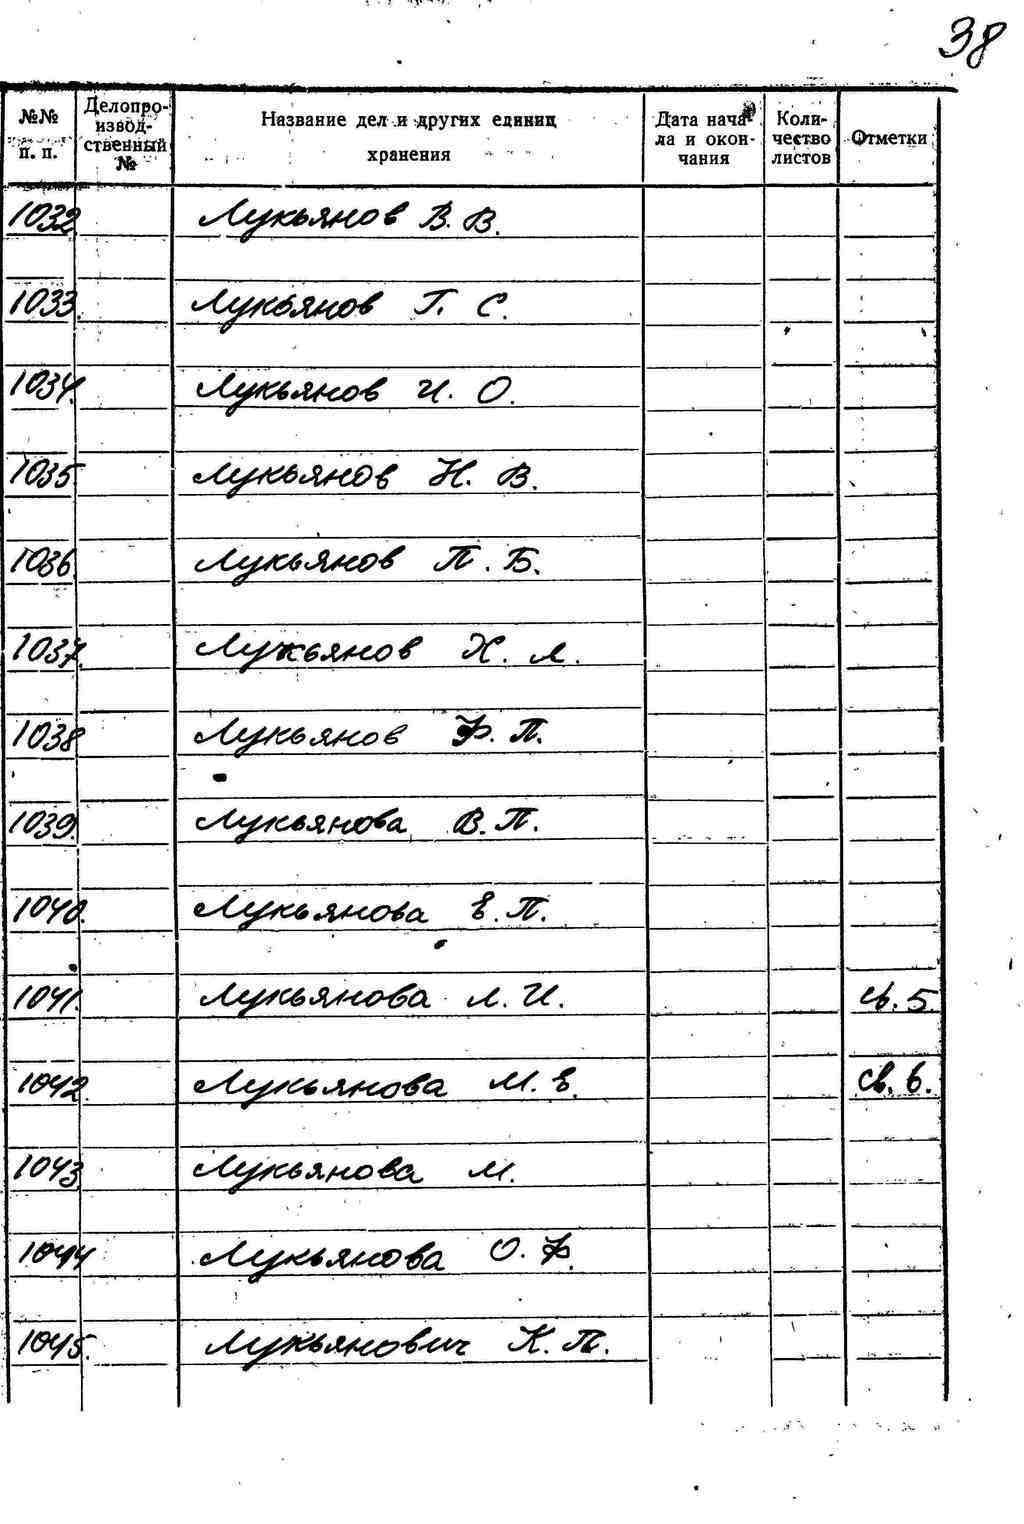 38
№№ п. п. Делопроизводственный № Название дел и других единиц хранения Дата начала и окончания Количество листов Отметки
1032 Лукьянов В. В.
1033. Лукьянов Г. С.
1034. Лукьянов И. О.
1035 Лукьянов Н. В.
1036. Лукьянов П. Б.
1037. Лукьянов Х. Л.
1038 Лукьянов Ф. П.
1039. Лукьянова В. П.
1040. Лукьянова Е. П.
1041. Лукьянова Л. И. св. 5.
1042. Лукьянова М. Е. св. 6.
1043 Лукьянова М.
1044 Лукьянова О. Ф.
1045. Лукьянович К. П.